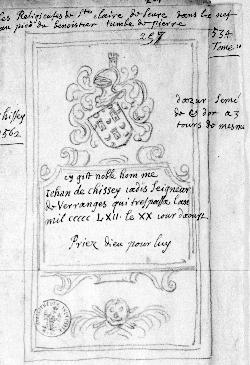 les Religieuses de Ste claire de Seure dans la nef
au pied du benoistier tumbe de pierre
257
534
Tome
chissey
1562
d'azur semé
de d'or a 3
tours de mesme
cy gist noble homme
Jehan de chissey iadis Seigneur
de Verranges qui trespassa l'an
mil ccccc LXII. le XX iour daoust
Priez dieu pour luy